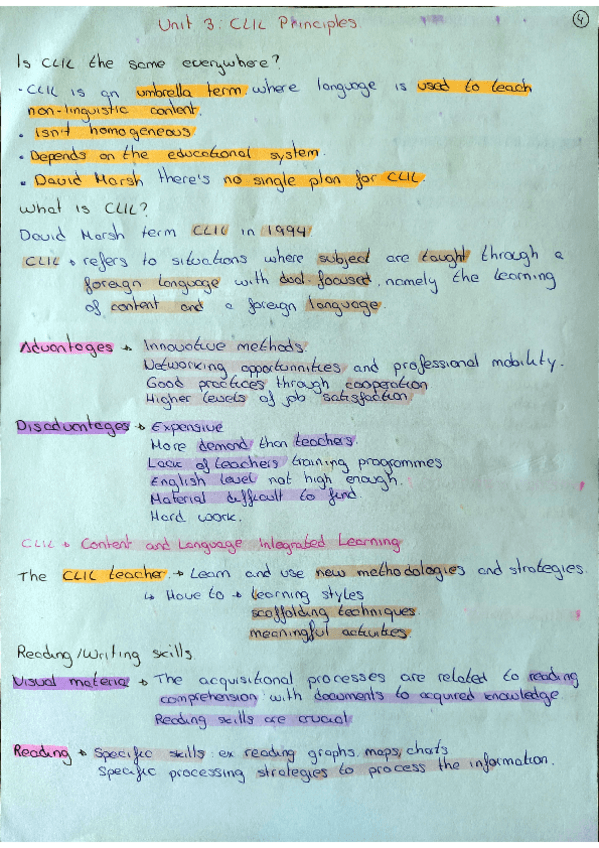 Unit 3: CLIL Principles.
4
Is CLIL the same everywhere?
· CLIL is an umbrella term where language is used to teach
non-linguistic content.
• isn't homogeneous
• Depends on the educational system.
• David Marsh there's no single plan for CLIL.
What is CLIL?
David Marsh term CLIL in 1994
CLIL → refers to situations where subject are taught through a
foreign language with dual-focused, namely the learning
of content and a foreign language.
Advantages → Innovative methods.
Networking opportunnities and professional mobility.
Good practices through cooperation
Higher levels of job satisfaction
Disadvantages → Expensive
More demand than teachers.
Lack of teachers training programmes
English level not high enough.
Material difficult to find.
Hard work.
CLIL → Content and Language Integrated Learning
The CLIL teacher → Learn and use new methodologies and strategies.
↳ Have to → learning styles
scaffolding techniques.
meaningful activities
Reading/Writing skills
Visual material → The acquisitional processes are related to reading
comprehension with documents to acquired knowledge
Reading skills are crucial
Reading → Specific skills: ex reading graphs, maps, charts
Specific processing strategies to process the information.